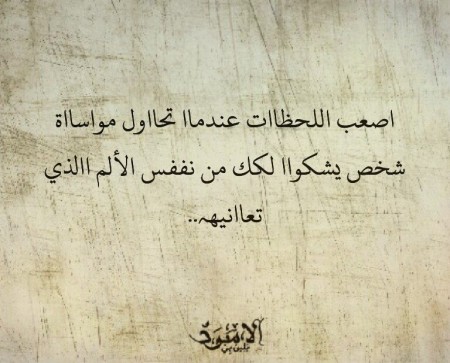 اصعب اللحظاات عندماا تحااول مواسااة
شخص يشكواا لكك من نففس الألم االذي
تعاانيهہ..